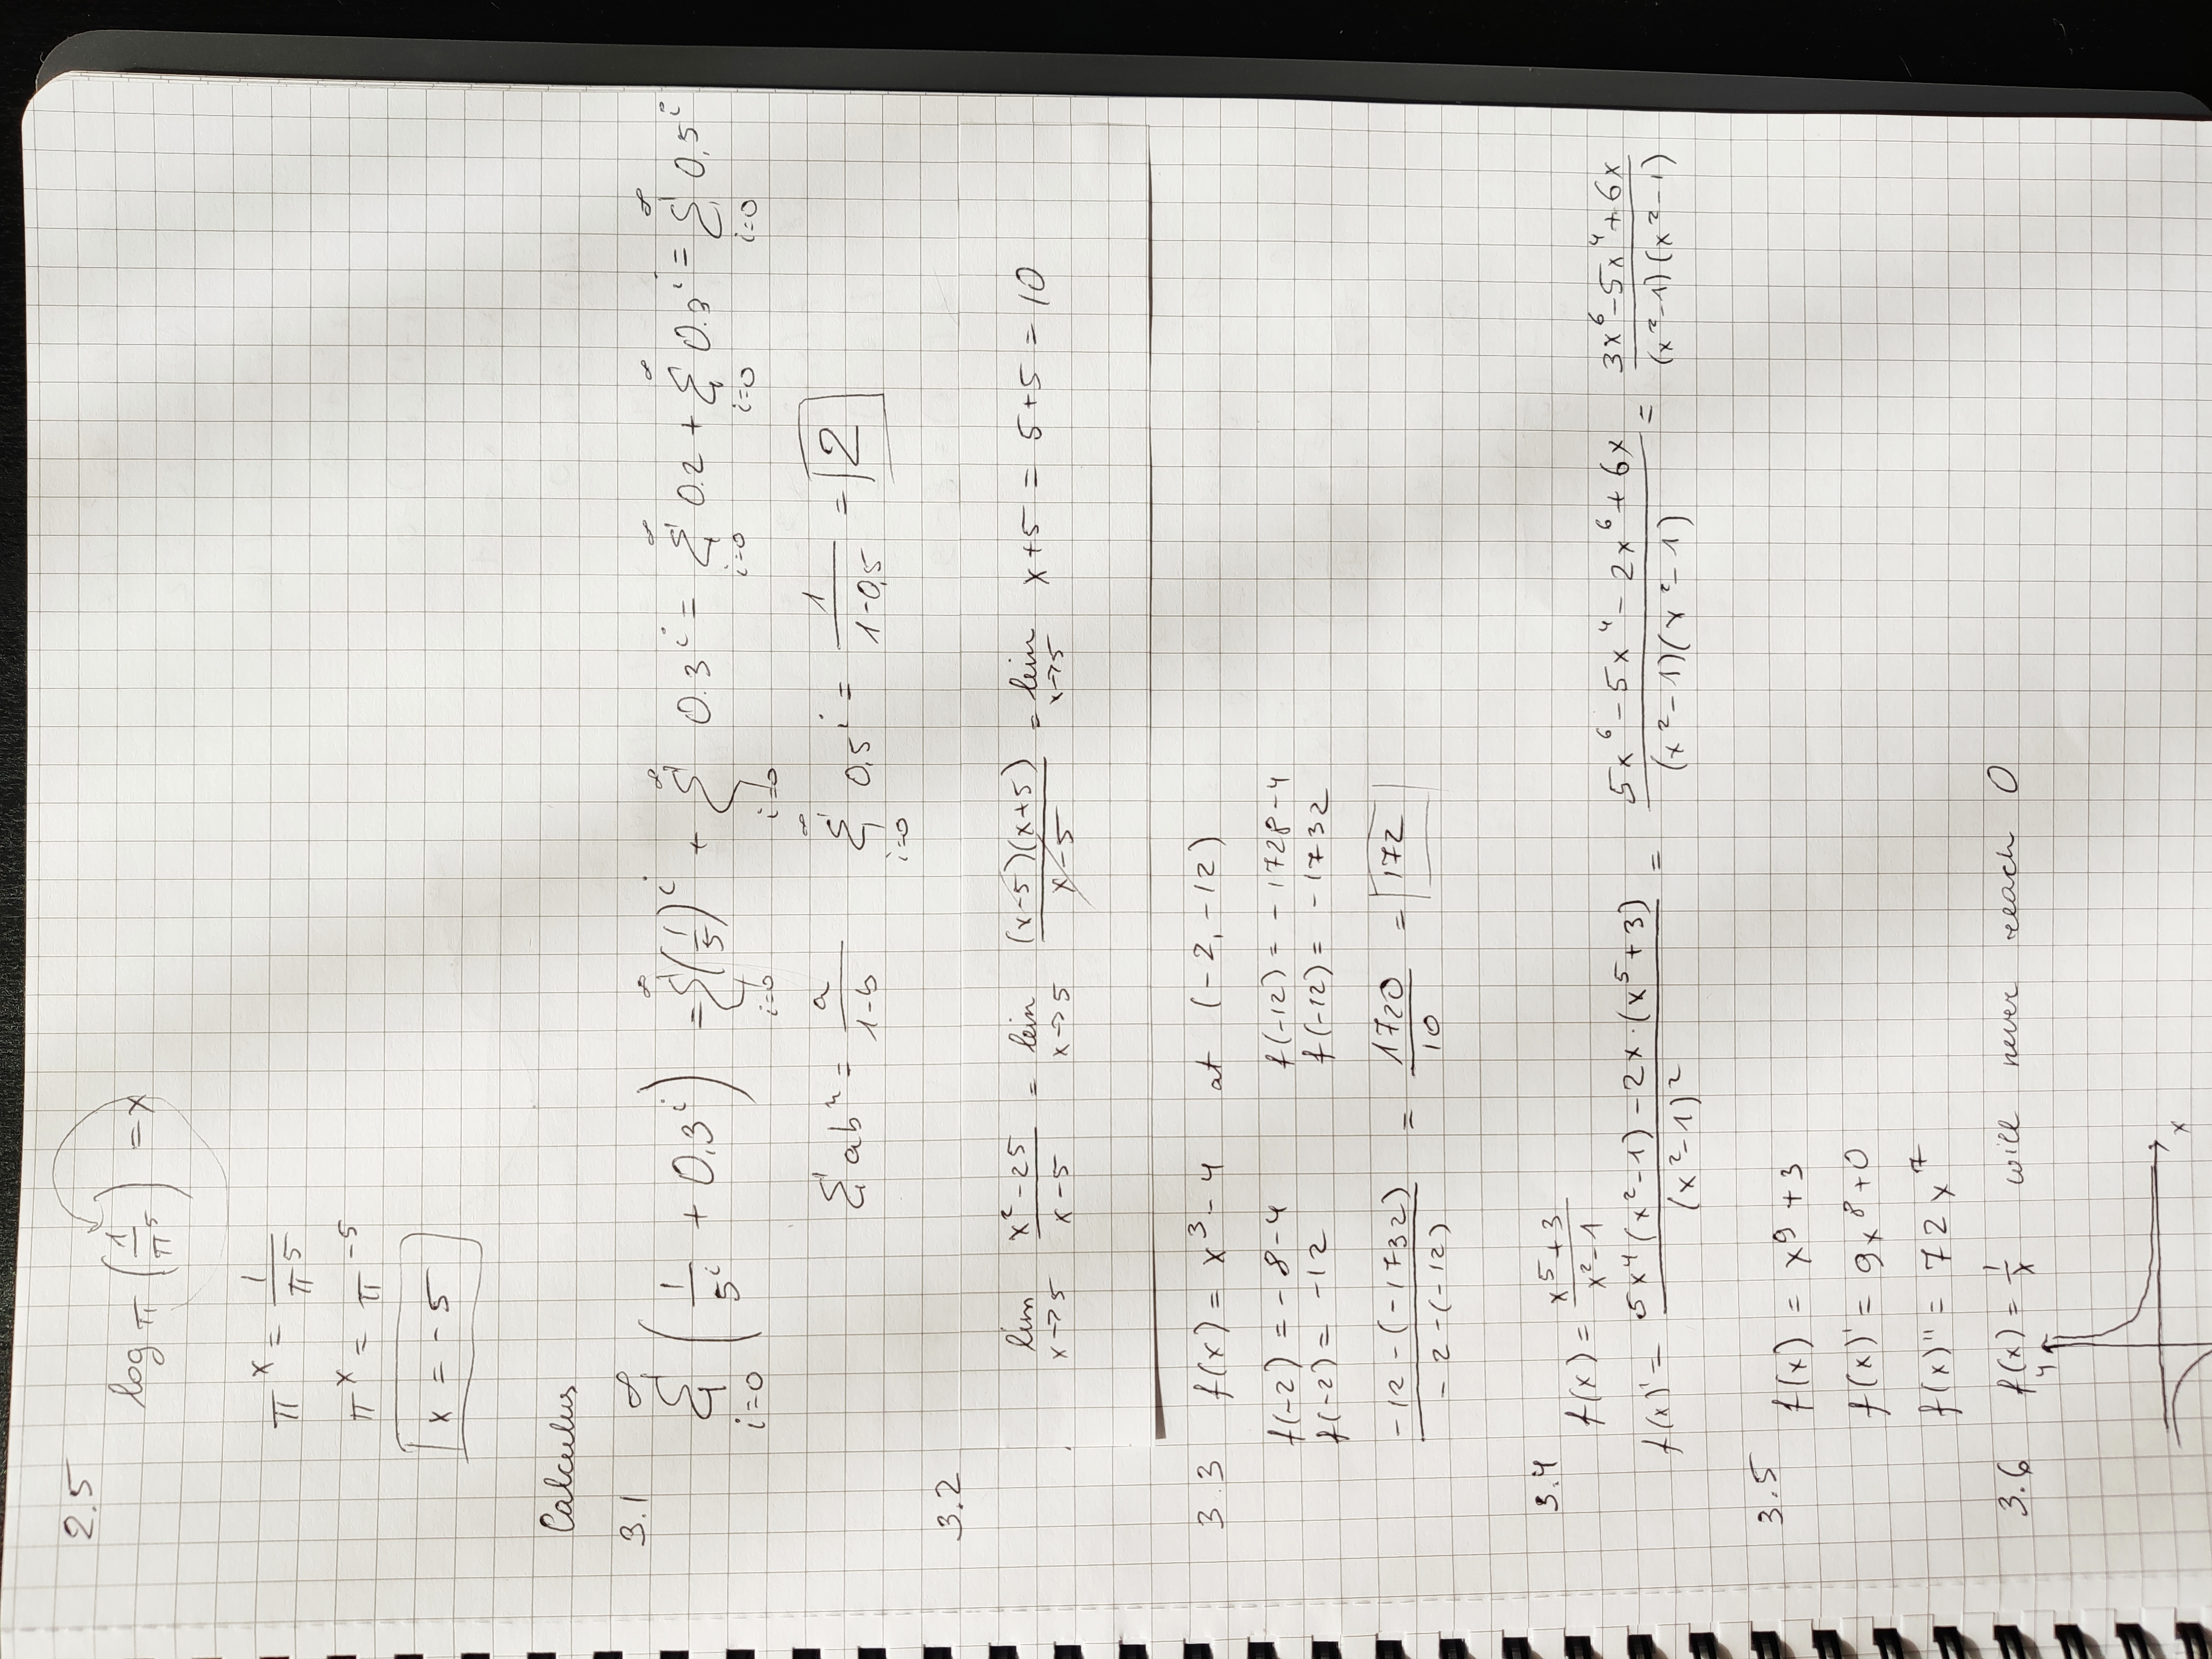 2.5
log_π (1/π^5) = x
π^x = 1/π^5
π^x = π^-5
x = -5
Calculus
3.1 ∑_{i=0}^∞ (1/5^i + 0,3^i) = ∑_{i=0}^∞ (1/5)^i + ∑_{i=0}^∞ 0.3^i = ∑_{i=0}^∞ 0.2 + ∑_{i=0}^∞ 0.3^i = ∑_{i=0}^∞ 0,5^i
∑ ab^n = a/(1-b) ∑_{i=0}^∞ 0,5^i = 1/(1-0,5) = 2
3.2
lim_{x→5} (x²-25)/(x-5) = lim_{x→5} (x-5)(x+5)/(x-5) = lim_{x→5} x+5 = 5+5 = 10
3.3 f(x) = x³-4 at (-2, -12)
f(-2) = -8-4 f(-12) = -1728-4
f(-2) = -12 f(-12) = -1732
(-12-(-1732))/(-2-(-12)) = 1720/10 = 172
3.4
f(x) = (x^5+3)/(x²-1)
f(x)' = (5x^4(x²-1)-2x·(x^5+3))/(x²-1)² = (5x^6-5x^4-2x^6+6x)/((x²-1)(x²-1)) = (3x^6-5x^4+6x)/((x²-1)(x²-1))
3.5
f(x) = x^9+3
f(x)' = 9x^8+0
f(x)'' = 72x^7
3.6 f(x) = 1/x will never reach 0
y
x